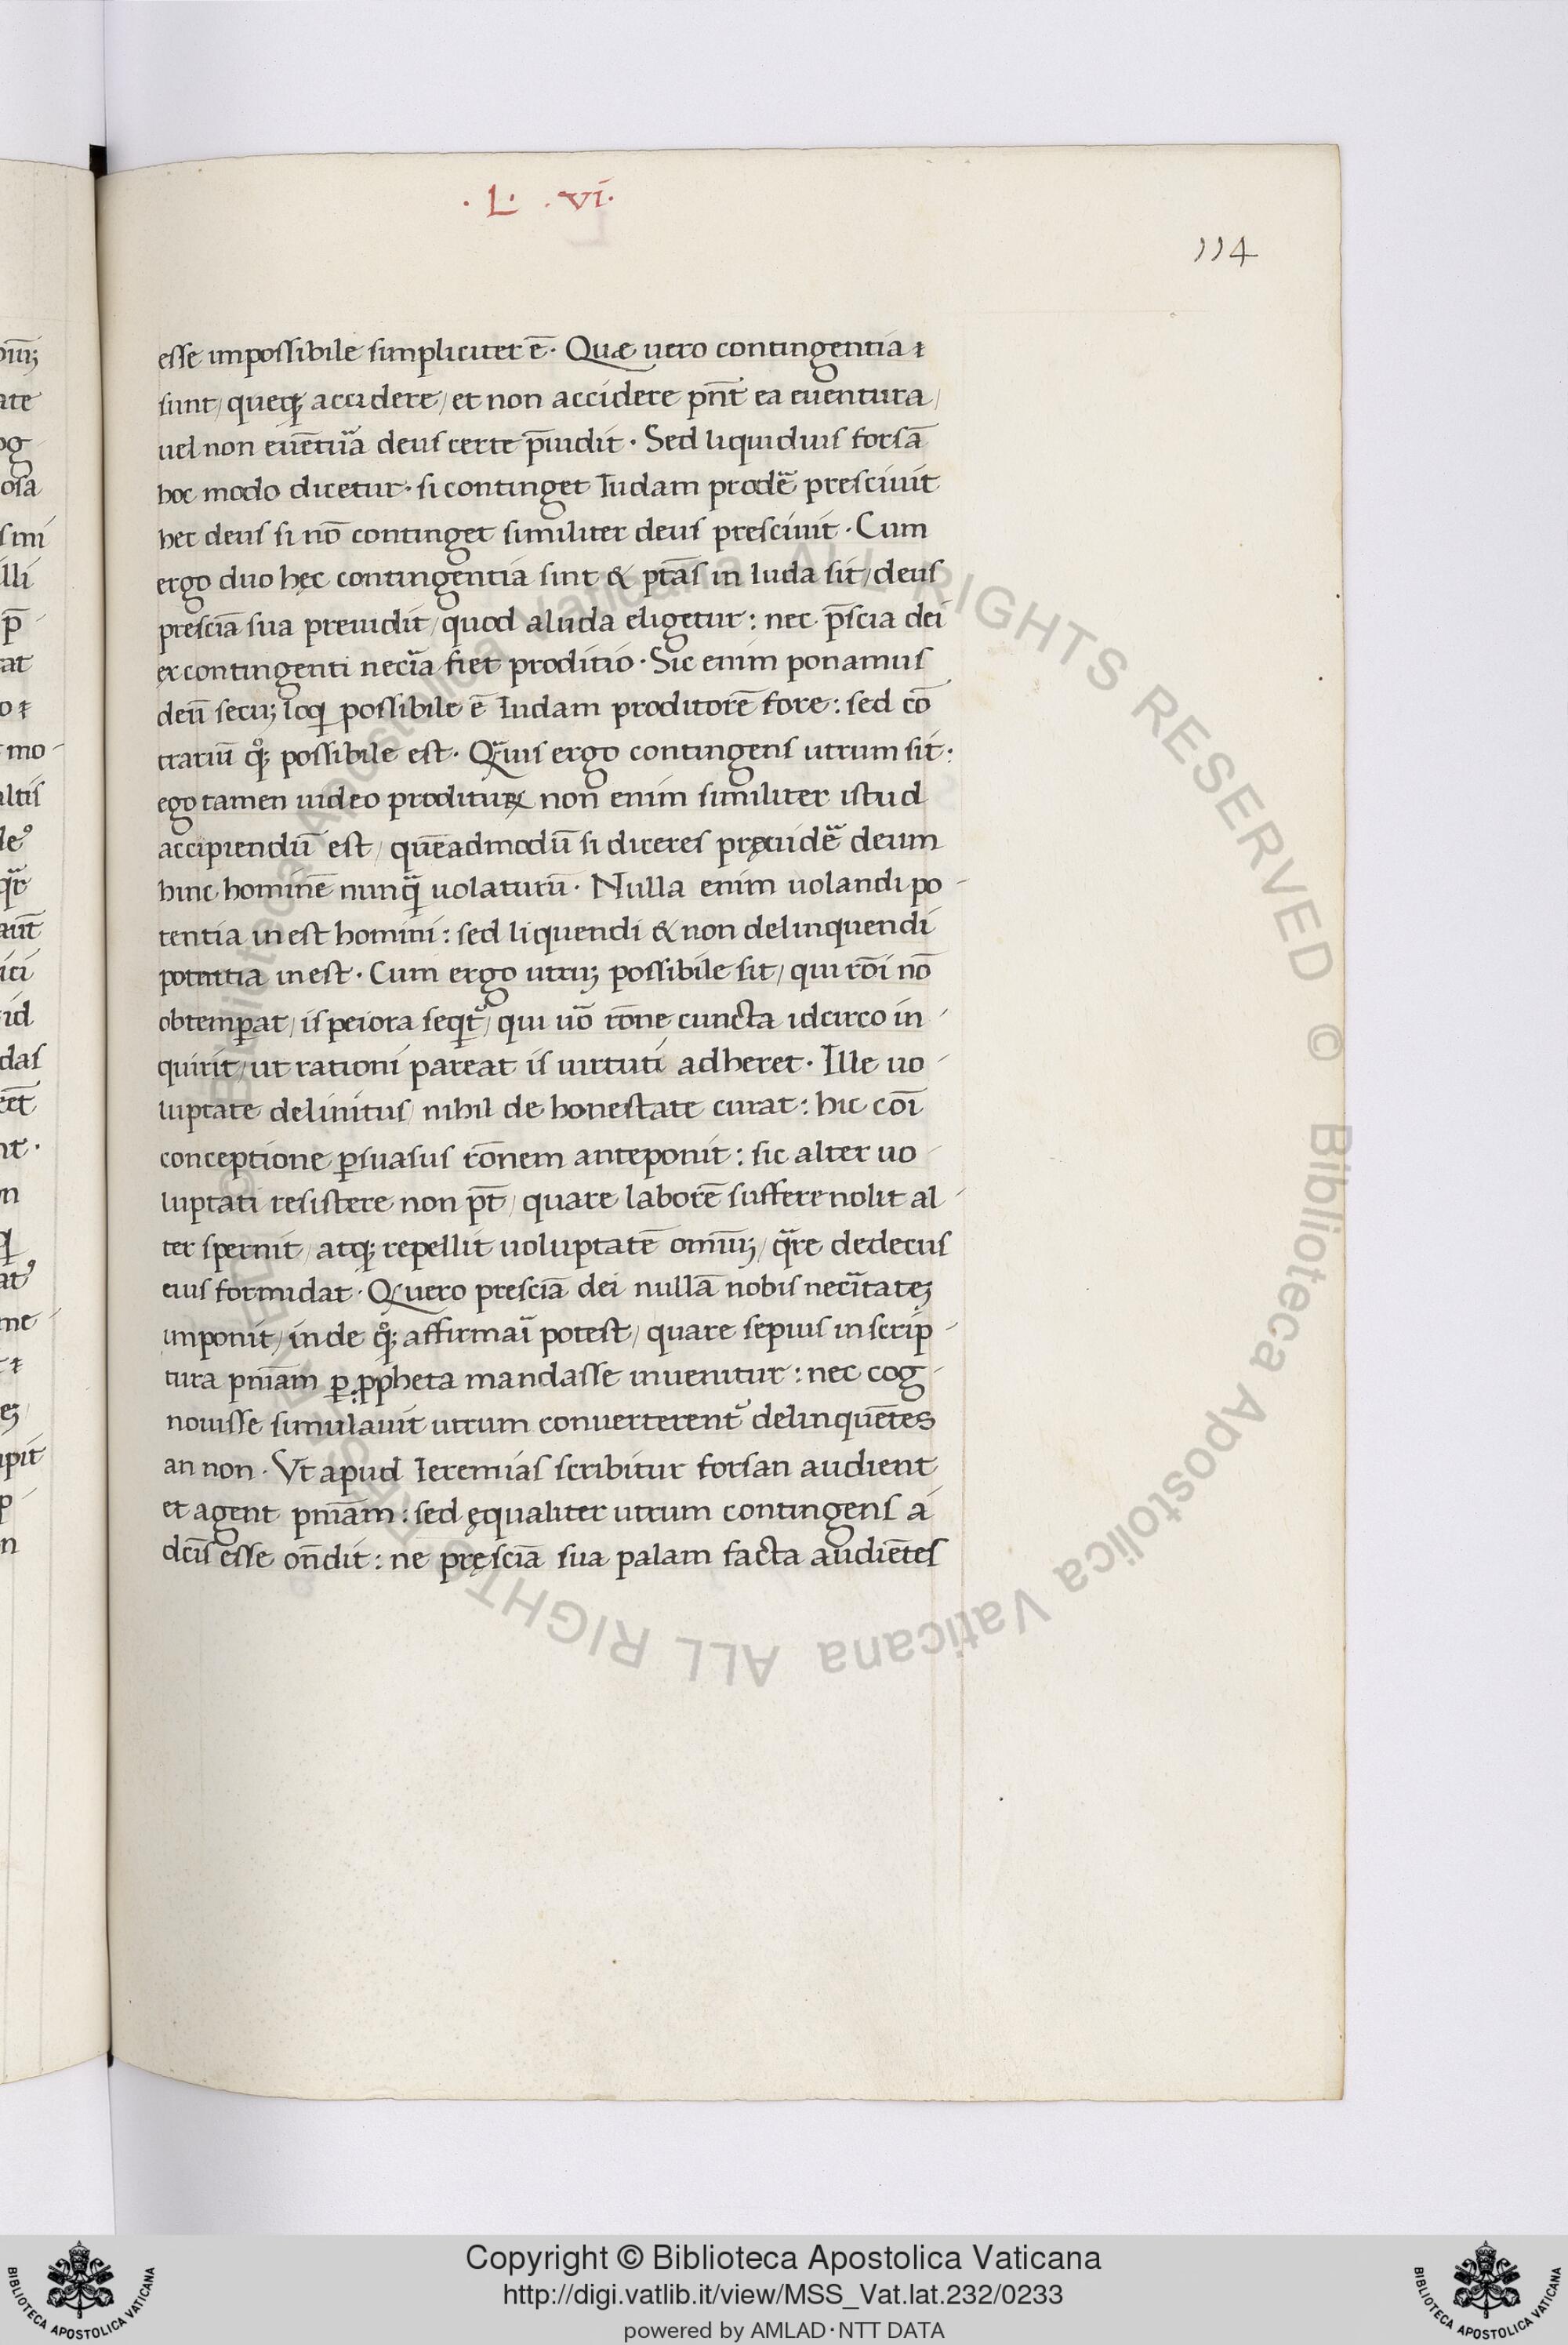 · L · · VI ·
114
esse impossibile simpliciter ē · Quæ uero contingentia ⁊
sunt / queq; accidere / et non accidere pn̄t ea euentura /
uel non euētura deus certe p̄uidit · Sed liquidius forsā
hoc modo dicetur · si continget Iudam prodē presciuit
hec deus si nō continget similiter deus presciuit · Cum
ergo duo hęc contingentia sint & ptās in Iuda sit / deus
presciā sua preuidit / quod a Iuda eligetur : nec p̄scia dei
ex contingenti necīa fiet proditio · Sic enim ponamus
deū secū; loqi possibile ē Iudam proditorē fore : sed cō
trariū qͦ; possibile est · Qᷓuis ergo contingens utrum sit ·
ego tamen uideo prodituꝝ non enim similiter istud
accipiendū est / quēadmodū si diceres pręuidē deum
hinc hominē nunqᷓ uolaturū · Nulla enim uolandi po-
tentia inest homini : sed liquendi & non delinquendi
potentia inest · Cum ergo utrū; possibile sit / qui rōi nō
obtemꝑat / is peiora seqit᷑ / qui uō rōne cuncta idcirco in-
quirit / ut rationi pareat is uirtuti adheret · Ille uo-
luptate delinitus / nihil de honestate curat : hic cōi
conceptione ꝑsuasus rōnem anteponit : sic alter uo-
luptati resistere non pt̄ / quare laborē suffere nolit al-
ter spernit / atq; repellit uoluptatē omniū; / qᷓre dedecus
eius formidat · Q uero presciā dei nullā nobis necītate;
imponit / inde qͦ; affirmaī potest / quare sepius in scrip-
tura pniam ꝑ ꝓpheta mandasse inuenitur : nec cog-
nouisse simulauit utrum conuerterent᷑ delinquētes
an non · Vt apud Ieremias scribitur forsan audient
et agent pniam : sed ęqualiter utrum contingens a
dcīs esse on̄dit : ne pręsciā sua palam facta audiētes
Copyright © Biblioteca Apostolica Vaticana
http://digi.vatlib.it/view/MSS_Vat.lat.232/0233
powered by AMLAD·NTT DATA